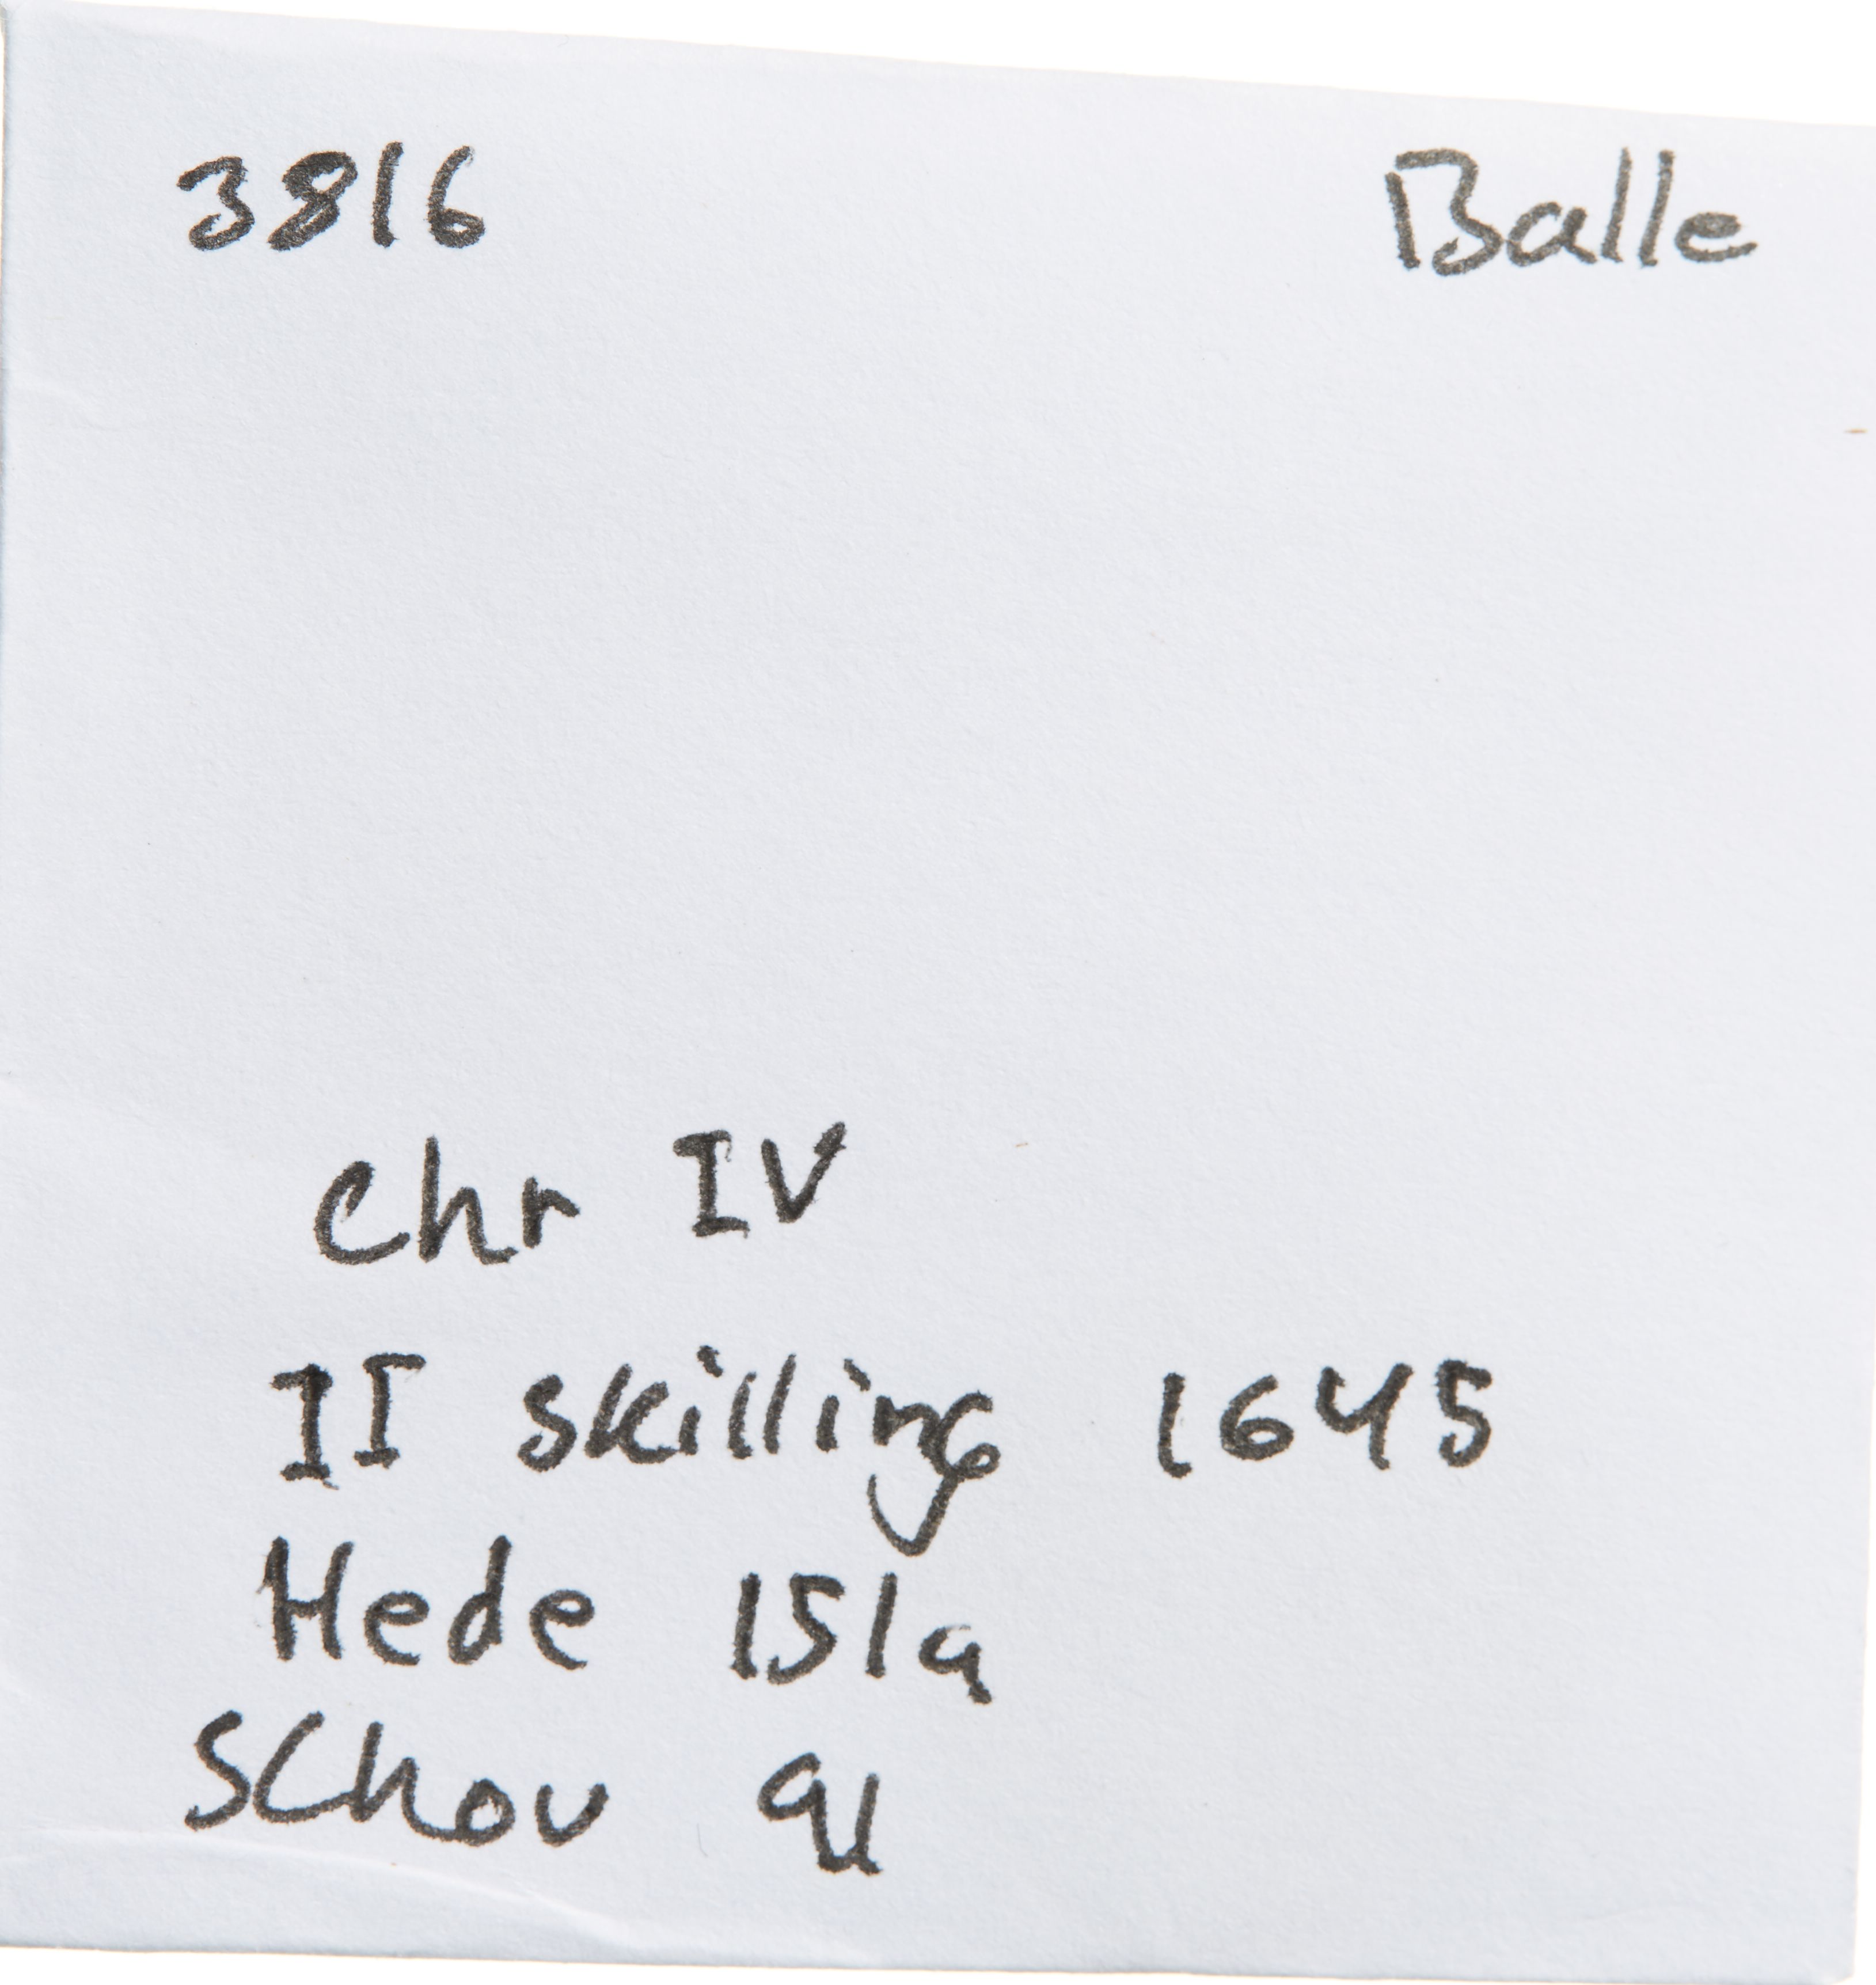 3816 Balle
Chr IV
II skilling 1645
Hede 151a
Schou 91